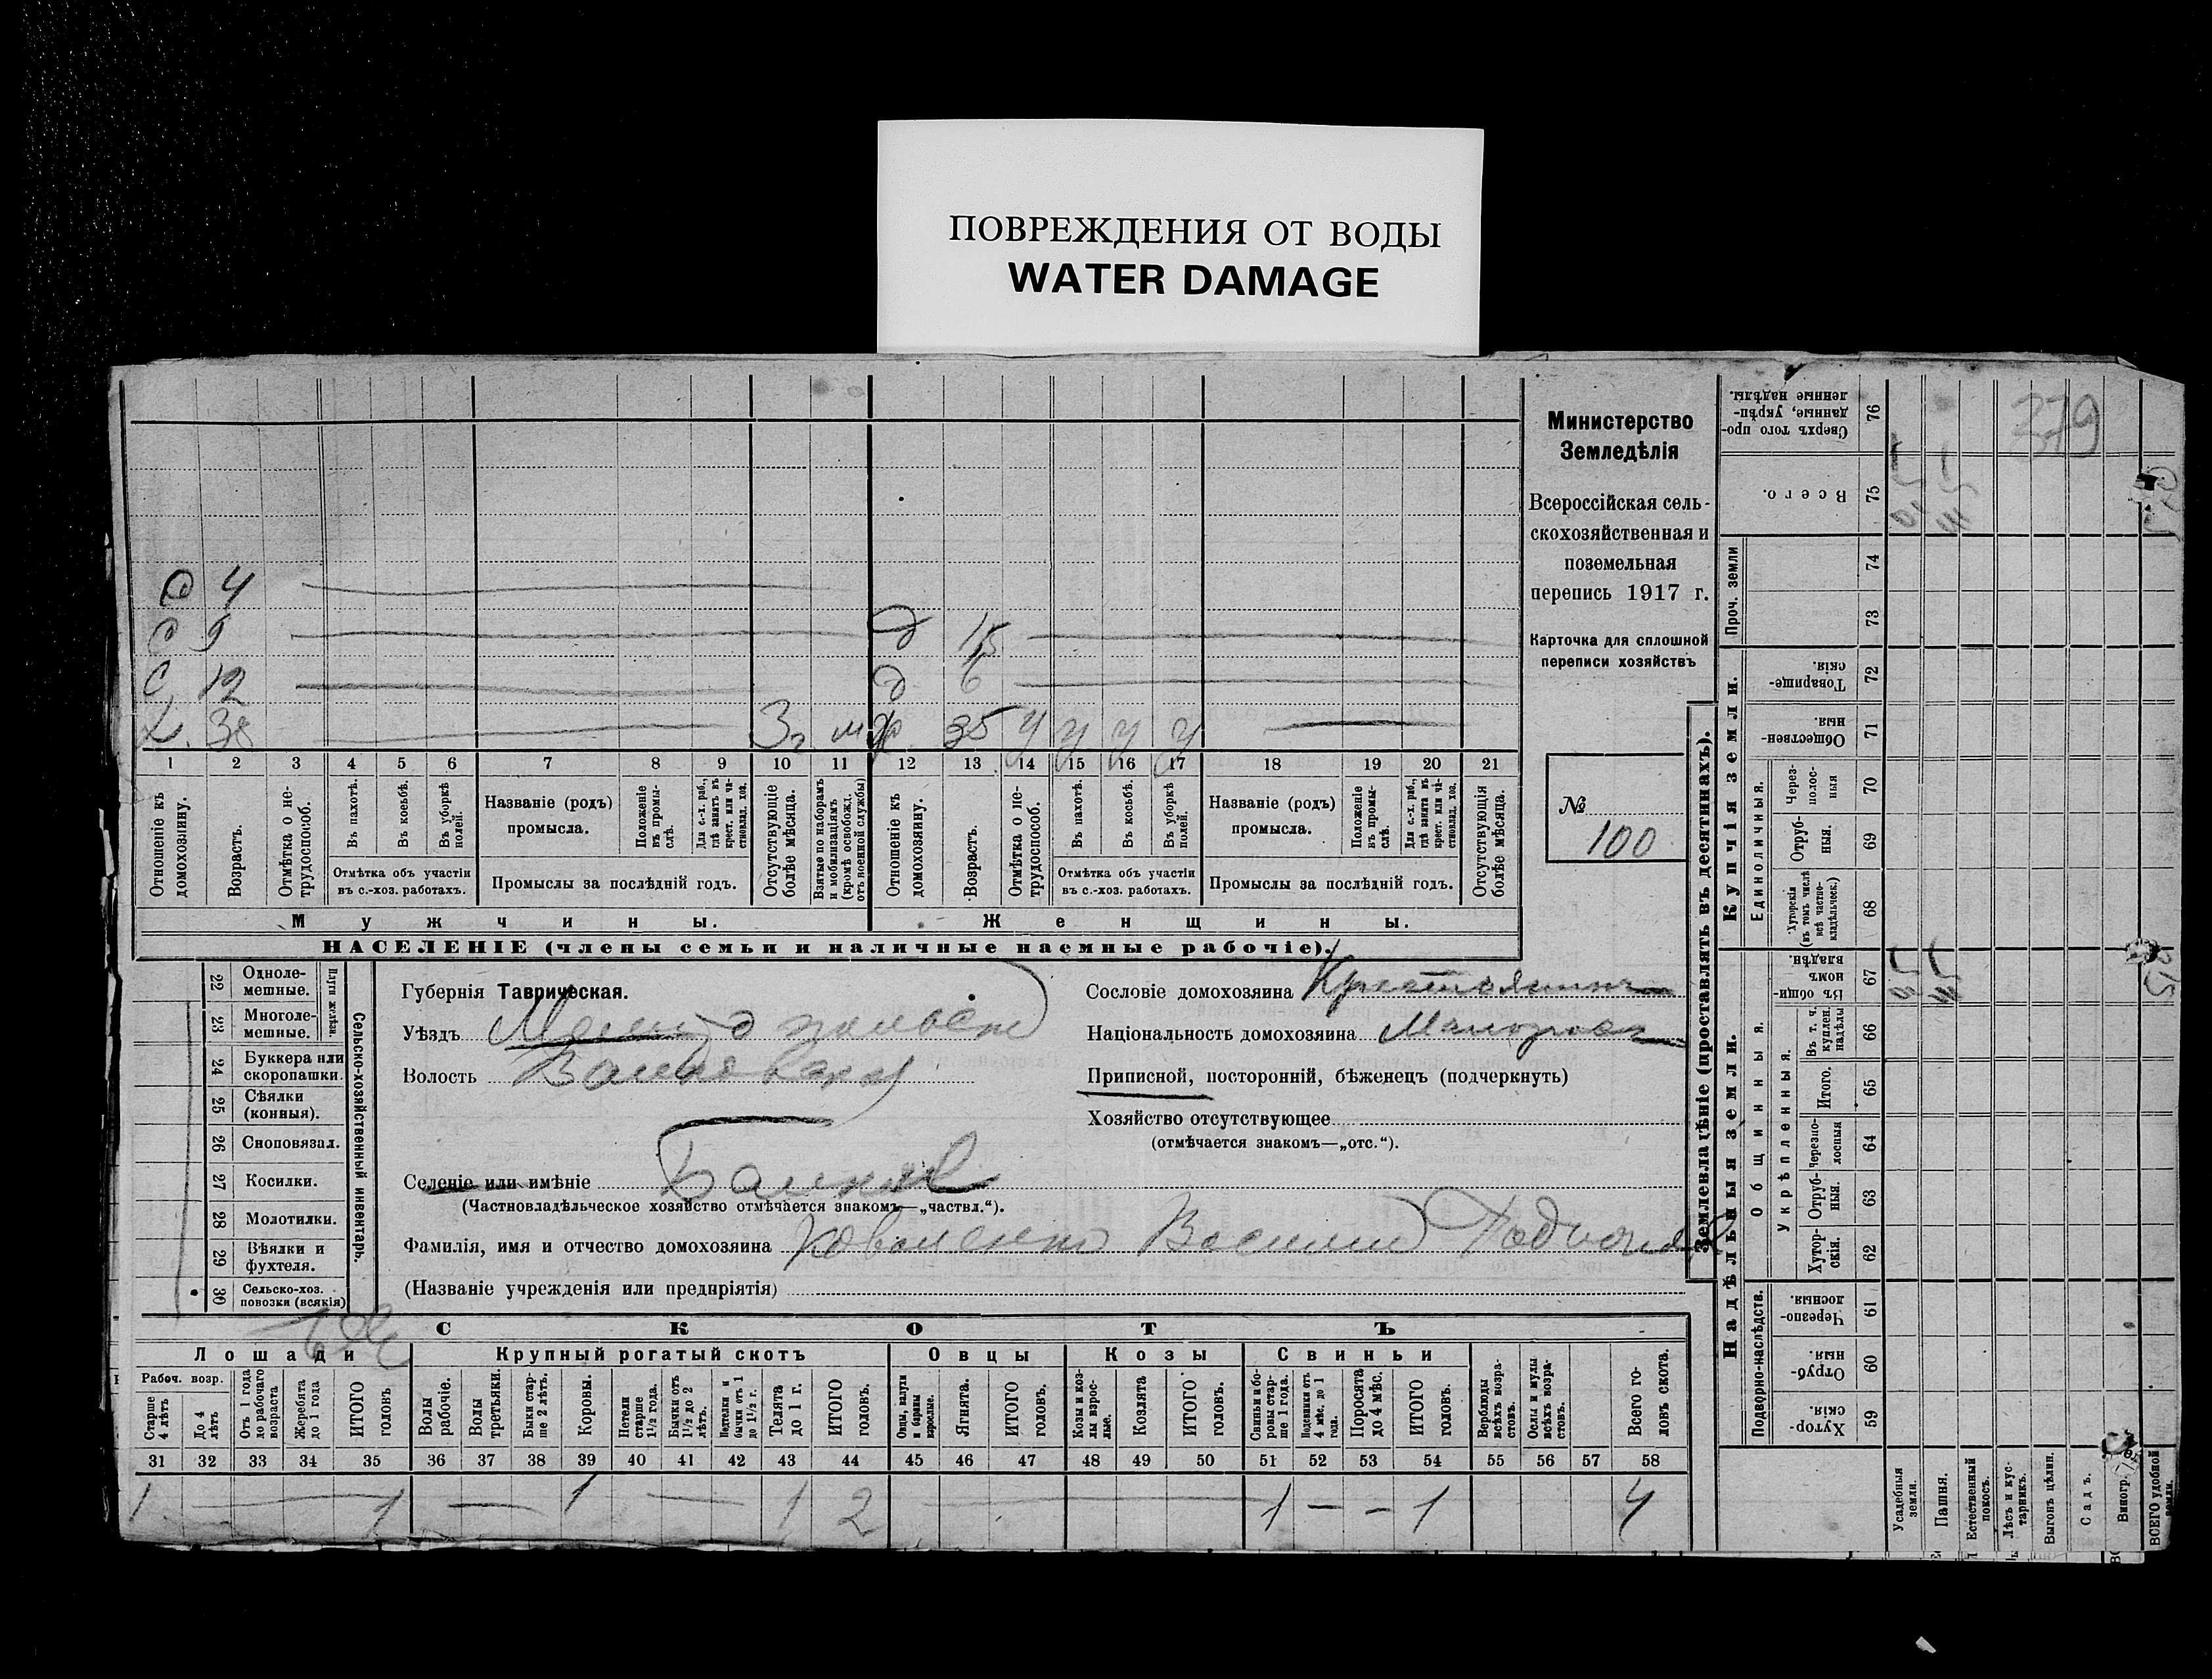 ПОВРЕЖДЕНИЯ ОТ ВОДЫ
WATER DAMAGE
379
Министерство
Земледѣлія
Всероссійская сель-
скохозяйственная и
поземельная
перепись 1917 г.
Карточка для сплошной
переписи хозяйствъ
№
100
4
9
15
С 12
6
38 3 г 35 У У У У
1 2 3 4 5 6 7 8 9 10 11 12 13 14 15 16 17 18 19 20 21
Отношеніе къ домохозяину.
Возрастъ.
Отмѣтка о не-трудоспособ.
Въ пахотѣ.
Въ косьбѣ.
Въ уборкѣ полей.
Отмѣтка объ участіи въ с.-хоз. работахъ.
Названіе (родъ) промысла.
Положеніе въ промы-слѣ.
Для с.-х. раб., гдѣ занятъ въ крест. или ча-стновлад. хоз.
Промыслы за послѣдній годъ.
Отсутствующіе болѣе мѣсяца.
Взятые по наборамъ и мобилизаціямъ (кромѣ освобожд. отъ военной службы)
Отношеніе къ домохозяину.
Возрастъ.
Отмѣтка о не-трудоспособ.
Въ пахотѣ.
Въ косьбѣ.
Въ уборкѣ полей.
Отмѣтка объ участіи въ с.-хоз. работахъ.
Названіе (родъ) промысла.
Положеніе въ промы-слѣ.
Для с.-х. раб., гдѣ занята въ крест. или ча-стновлад. хоз.
Промыслы за послѣдній годъ.
Отсутствующія болѣе мѣсяца.
Мужчины. Женщины.
НАСЕЛЕНІЕ (члены семьи и наличные наемные рабочіе).
22 Одноле-мешные.
23 Многоле-мешные.
Плуги желѣзн.
24 Буккера или скоропашки.
25 Сѣялки (конныя).
26 Сноповязал.
27 Косилки.
28 Молотилки.
29 Вѣялки и фухтеля.
30 Сельско-хоз. повозки (всякія)
Сельско-хозяйственный инвентарь.
Губернія Таврическая.
Уѣздъ
Волость
Селеніе или имѣніе
(Частновладѣльческое хозяйство отмѣчается знакомъ—„частвл.“).
Фамилія, имя и отчество домохозяина Коваленко Василий
(Названіе учрежденія или предпріятія)
Сословіе домохозяина Крестьянинъ
Національность домохозяина Малоросъ
Приписной, посторонній, бѣженецъ (подчеркнуть)
Хозяйство отсутствующее
(отмѣчается знакомъ—„отс.“).
СКОТЪ
Лошади Крупный рогатый скотъ Овцы Козы Свиньи
Рабоч. возр.
Старше 4 лѣтъ
До 4 лѣтъ
Отъ 1 года до рабочаго возраста
Жеребята до 1 года
ИТОГО головъ
Волы рабочіе.
Волы третьяки.
Быки стар-ше 2 лѣтъ.
Коровы.
Нетели старше 1½ года.
Бычки отъ 1½ до 2 лѣтъ.
Нетелки и бычки отъ 1 до 1½ г.
Телята до 1 г.
ИТОГО головъ.
Овцы, валухи и бараны взрослые.
Ягнята.
ИТОГО головъ.
Козы и коз-лы взрос-лые.
Козлята
ИТОГО головъ.
Свиньи и бо-ровы стар-ше 1 года.
Подсвинки отъ 4 мѣс. до 1 года.
Поросята до 4 мѣс.
ИТОГО головъ.
Верблюды всѣхъ возра-стовъ.
Ослы и мулы всѣхъ возра-стовъ.
Всего го-ловъ скота.
31 32 33 34 35 36 37 38 39 40 41 42 43 44 45 46 47 48 49 50 51 52 53 54 55 56 57 58
1 — 1 — 1 — 1 2 — 1 — — 1 4
Землевладѣніе (проставлять въ десятинахъ).
Купчія земли.
Надѣльныя земли.
Сверхъ того про-данные, укрѣп-ленные надѣлы. 76
Всего. 75
Проч. земли
74
73
Товарище-скія. 72
Обществен-ныя. 71
Единоличныя.
Через-полос-ныя 70
Отруб-ныя. 69
Хуторскія (въ томъ числѣ всѣ частно-владѣльческ.) 68
Общинныя.
Въ общи-номъ владѣн. 67
Укрѣпленныя.
Въ т. ч. куплен. надѣлы 66
Итого. 65
Черезпо-лосныя 64
Отруб-ныя. 63
Хутор-скія. 62
Подворно-наслѣдств.
Черезпо-лосныя 61
Отруб-ныя. 60
Хутор-скія. 59
Усадебныя земли.
Пашня.
Естественный покосъ.
Лѣсъ и кус-тарникъ.
Выгонъ цѣлин.
Садъ.
Виногр.
ВСЕГО удобной земли.